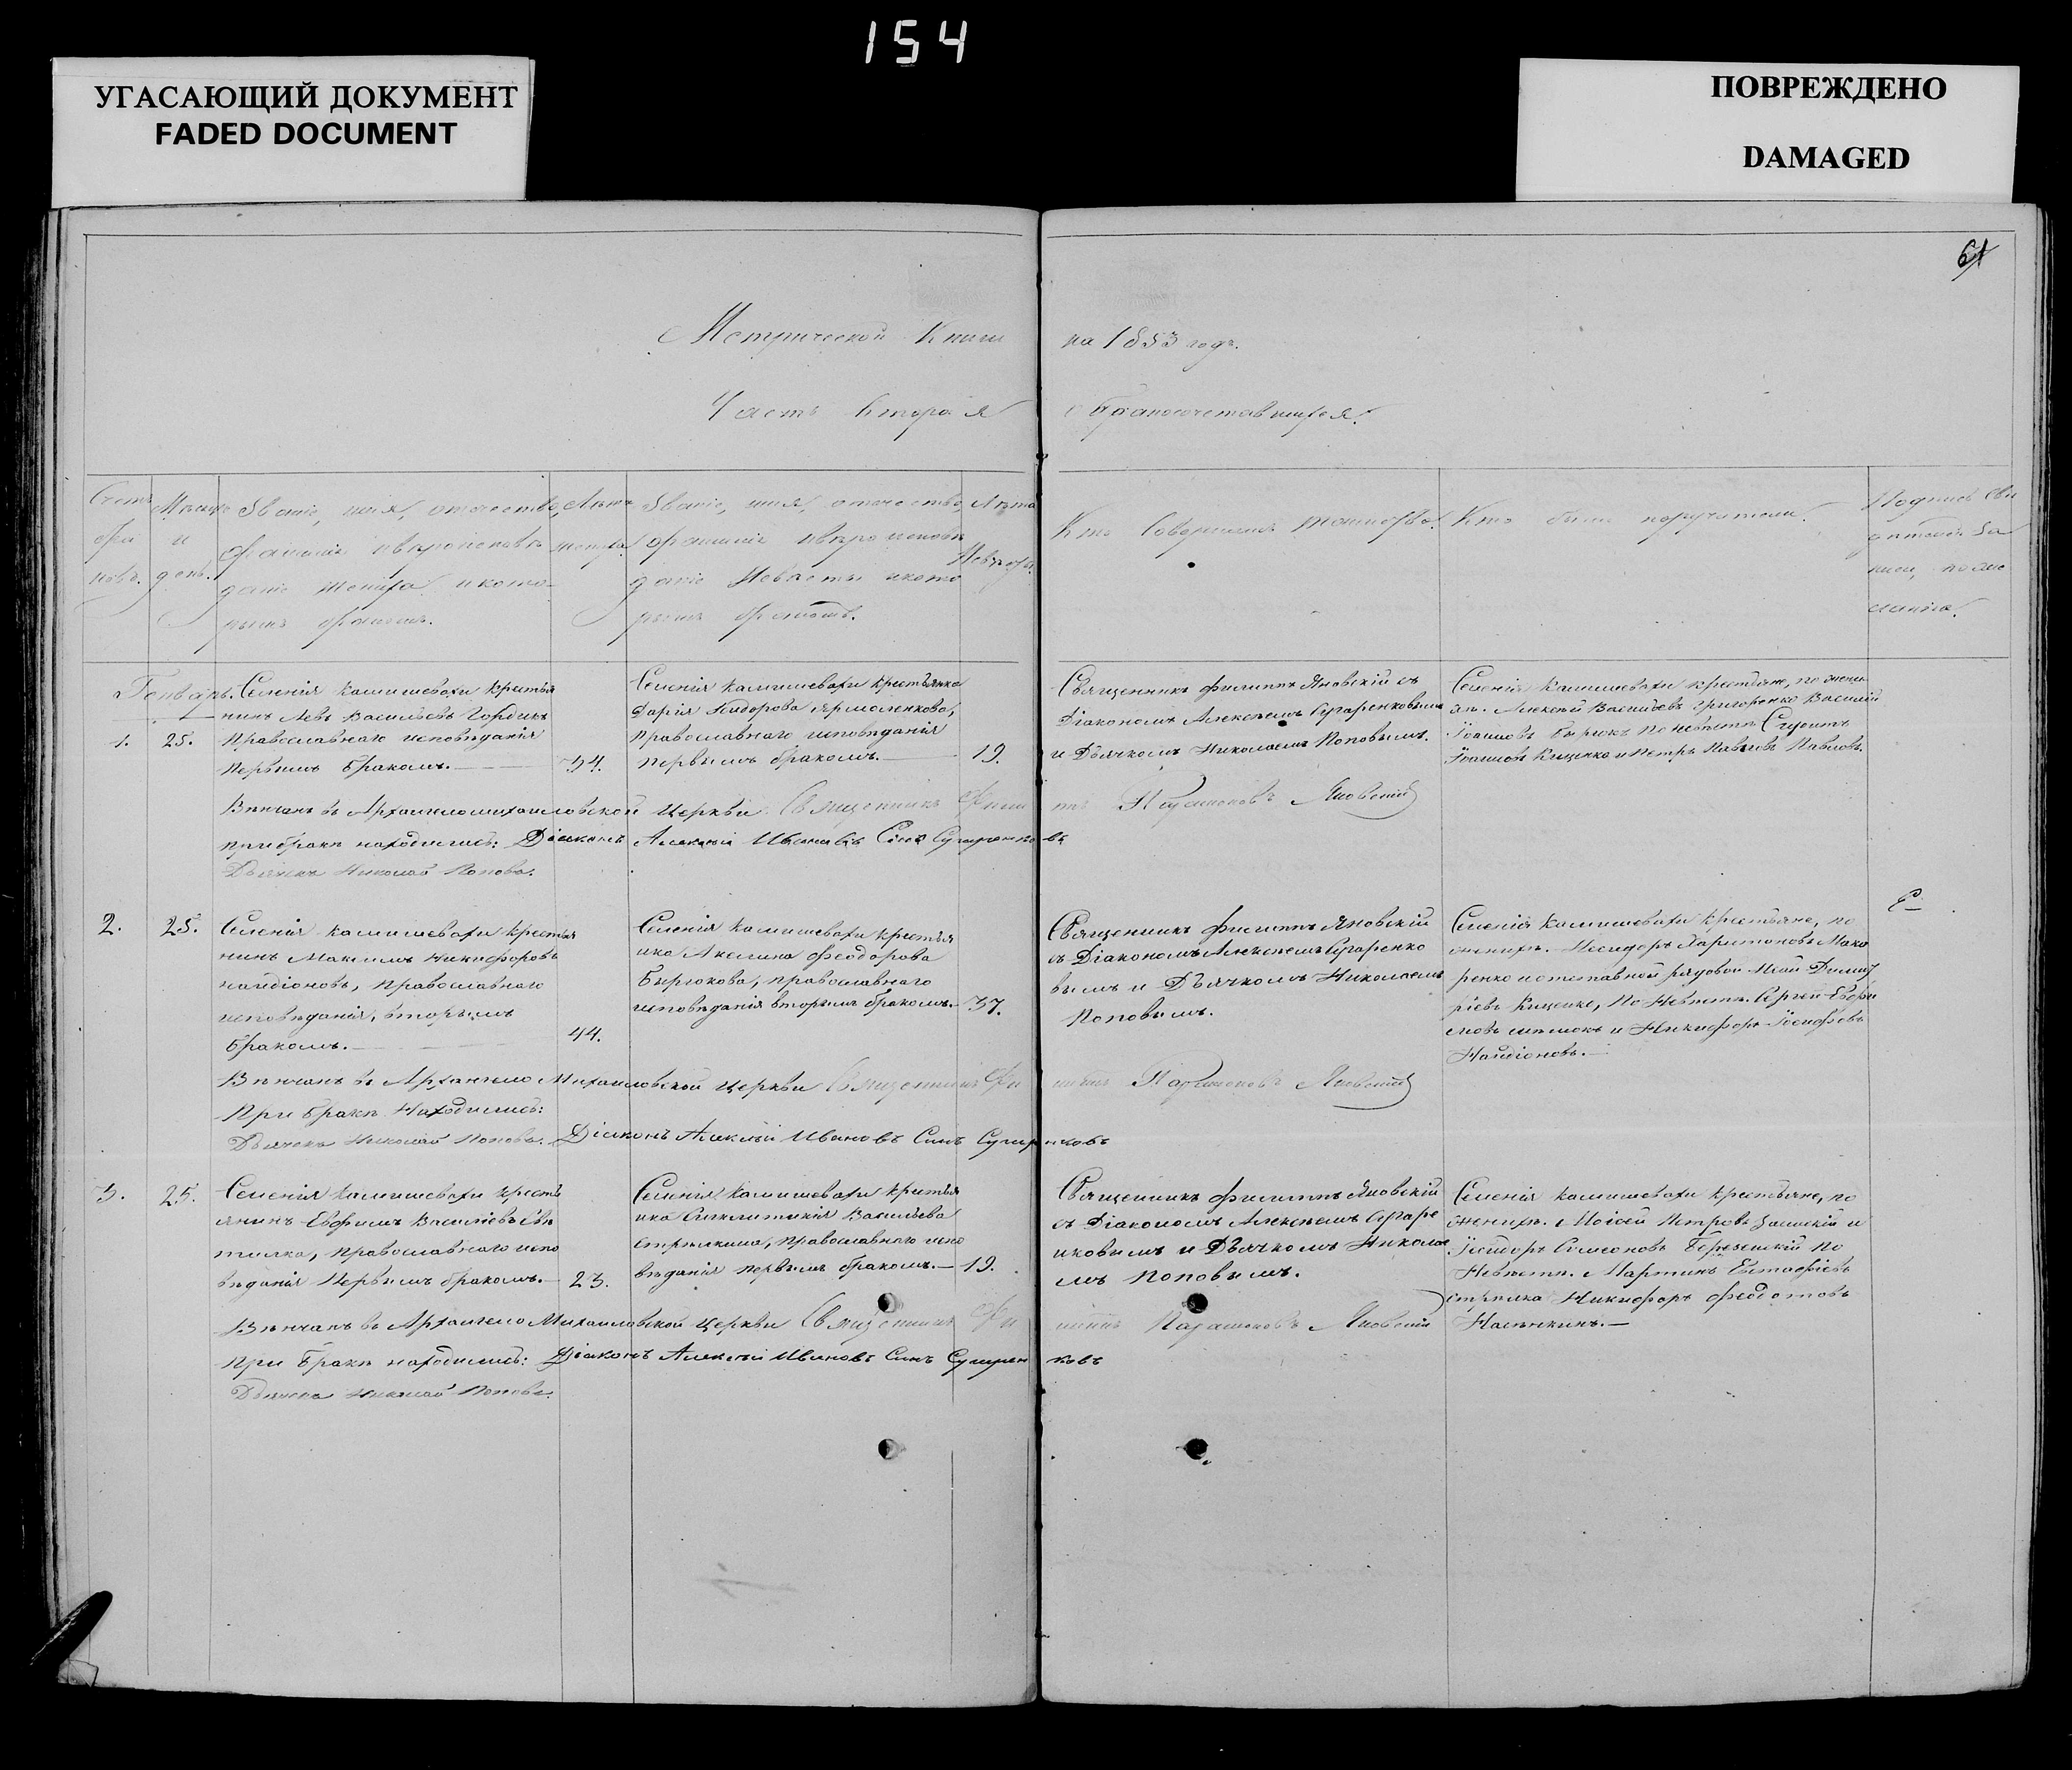 154
УГАСАЮЩИЙ ДОКУМЕНТ
FADED DOCUMENT
ПОВРЕЖДЕНО
DAMAGED
61
Метрической Книги на 1853 годъ.
Часть вторая о бракосочетавшихся.
Счетъ браковъ.
Месяцъ и день.
Званіе, имя, отчество,
фамилія и вѣроисповѣ
даніе жениха и кото-
рымъ бракомъ.
Лѣта жениха.
Званіе, имя, отчество,
фамилія и вѣроисповѣ
даніе невѣсты и кото
рымъ бракомъ.
Лѣта невѣсты.
Кто совершалъ таинство.
Кто были поручители.
Подпись сви
дѣтелей за
писи, по же
ланію.
Генварь.
1.
25.
Селенія Камишевахи крестья
нинъ Левъ Васильевъ Гордикъ
православнаго исповѣданія
первымъ бракомъ.
Селенія Камишевахи крестьянка
Дарія Ярмоленкова,
православнаго исповѣданія
первымъ бракомъ.
19.
Священникъ Филиппъ Яновскій съ
Діакономъ Алексѣемъ Сугаренковымъ
и Дьячкомъ Николаемъ Поповымъ.
Селенія Камишевахи крестьяне, по жени
хѣ. Алексѣй Васильевъ Григоренко Василій
Іоанновъ Бирюкъ по невѣстѣ
Іоанновъ Кищенко и Петръ Павловъ.
Вѣнчанъ въ Архангеломихаиловской церкви Священникъ Филиппъ Парамоновъ Яновскій
при бракѣ находились: Діаконъ Алексѣй Ивановъ Сынъ Сугаренковъ
Дьячекъ Николай Поповъ.
2.
25.
Селенія Камишевахи крестья
нинъ Максимъ Никифоровъ
Найдіоновъ, православнаго
исповѣданія, вторымъ
бракомъ.
44.
Селенія Камишевахи крестья
нка Акелина Феодорова
Бирюкова, православнаго
исповѣданія вторымъ бракомъ.
37.
Священникъ Филиппъ Яновскій
съ Діакономъ Алексѣемъ Сугаренко
вымъ и Дьячкомъ Николаемъ
Поповымъ.
Селенія Камишевахи крестьяне, по
женихѣ. Исидоръ Харитоновъ Мака
ренко и отставной рядовой Дмит
ріевъ Кищенко, по невѣстѣ. Сергей
и Никифоръ Іосифовъ
Найдіоновъ.
Вѣнчанъ въ Архангело Михаиловской церкви Священникъ Филиппъ Парамоновъ Яновскій
При бракѣ находились:
Дьячекъ Николай Поповъ. Діаконъ Алексѣй Ивановъ Сынъ Сугаренковъ
3.
25.
Селенія Камишевахи кресть
янинъ Евфимъ Васильевъ Свѣ
тилка, православнаго испо
вѣданія первымъ бракомъ.
23.
Селенія Камишевахи крестья
нка Синклитикія Васильева
Стрѣлкина, православнаго испо
вѣданія первымъ бракомъ.
19.
Священникъ Филиппъ Яновскій
съ Діакономъ Алексѣемъ Сугаре
нковымъ и Дьячкомъ Никола
емъ Поповымъ.
Селенія Камишевахи крестьяне, по
женихѣ. Моісей Петровъ и
Ісидоръ Симеоновъ по
невѣстѣ. Мартинъ Евстафіевъ
Стрѣлка Никифоръ Феодотовъ
Вѣнчанъ въ Архангело Михаиловской церкви Священникъ Филиппъ Парамоновъ Яновскій
При бракѣ находились: Діаконъ Алексѣй Ивановъ Сынъ Сугаренковъ
Дьячекъ Николай Поповъ.